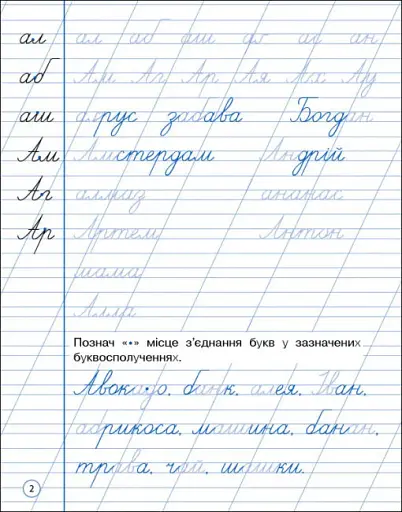 ал ал аб аш ас ан
аб Ам Аг Ар Ая Ах Ау
аш забава Богдан
Ам Амстердам Андрій
Аг алмаз ананас
Ар Артем Антон
мама
Алла
Познач «•» місце з'єднання букв у зазначених
буквосполученнях.
Авокадо, банк, алея, Іван,
абрикоса, машина, банан,
трава, чай, шашки.
2